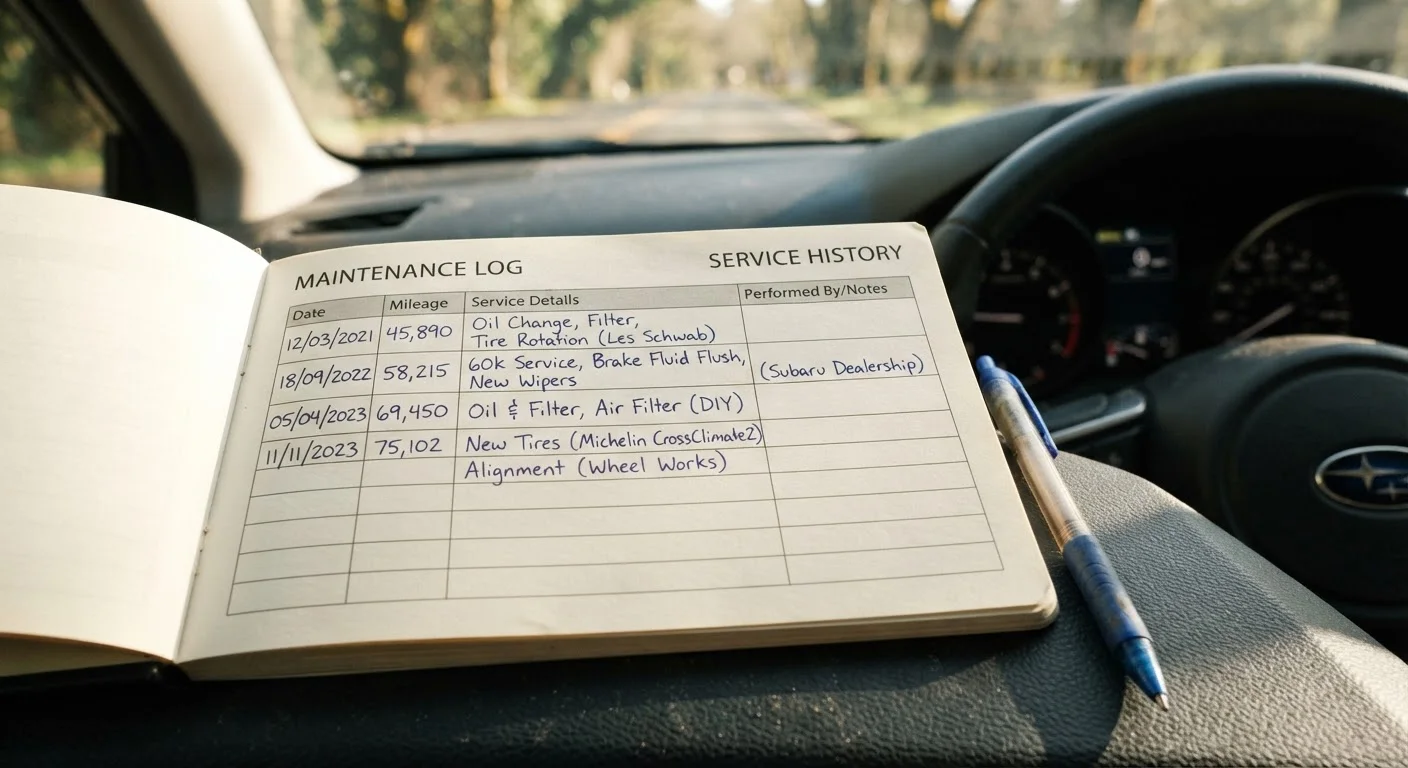 MAINTENANCE LOG
SERVICE HISTORY
Date Mileage Service Details Performed By/Notes
12/03/2021 45,890 Oil Change, Filter,
Tire Rotation (Les Schwab)
18/09/2022 58,215 60k Service, Brake Fluid Flush, (Subaru Dealership)
New Wipers
05/04/2023 69,450 Oil & Filter, Air Filter (DIY)
11/11/2023 75,102 New Tires (Michelin CrossClimate2)
Alignment (Wheel Works)